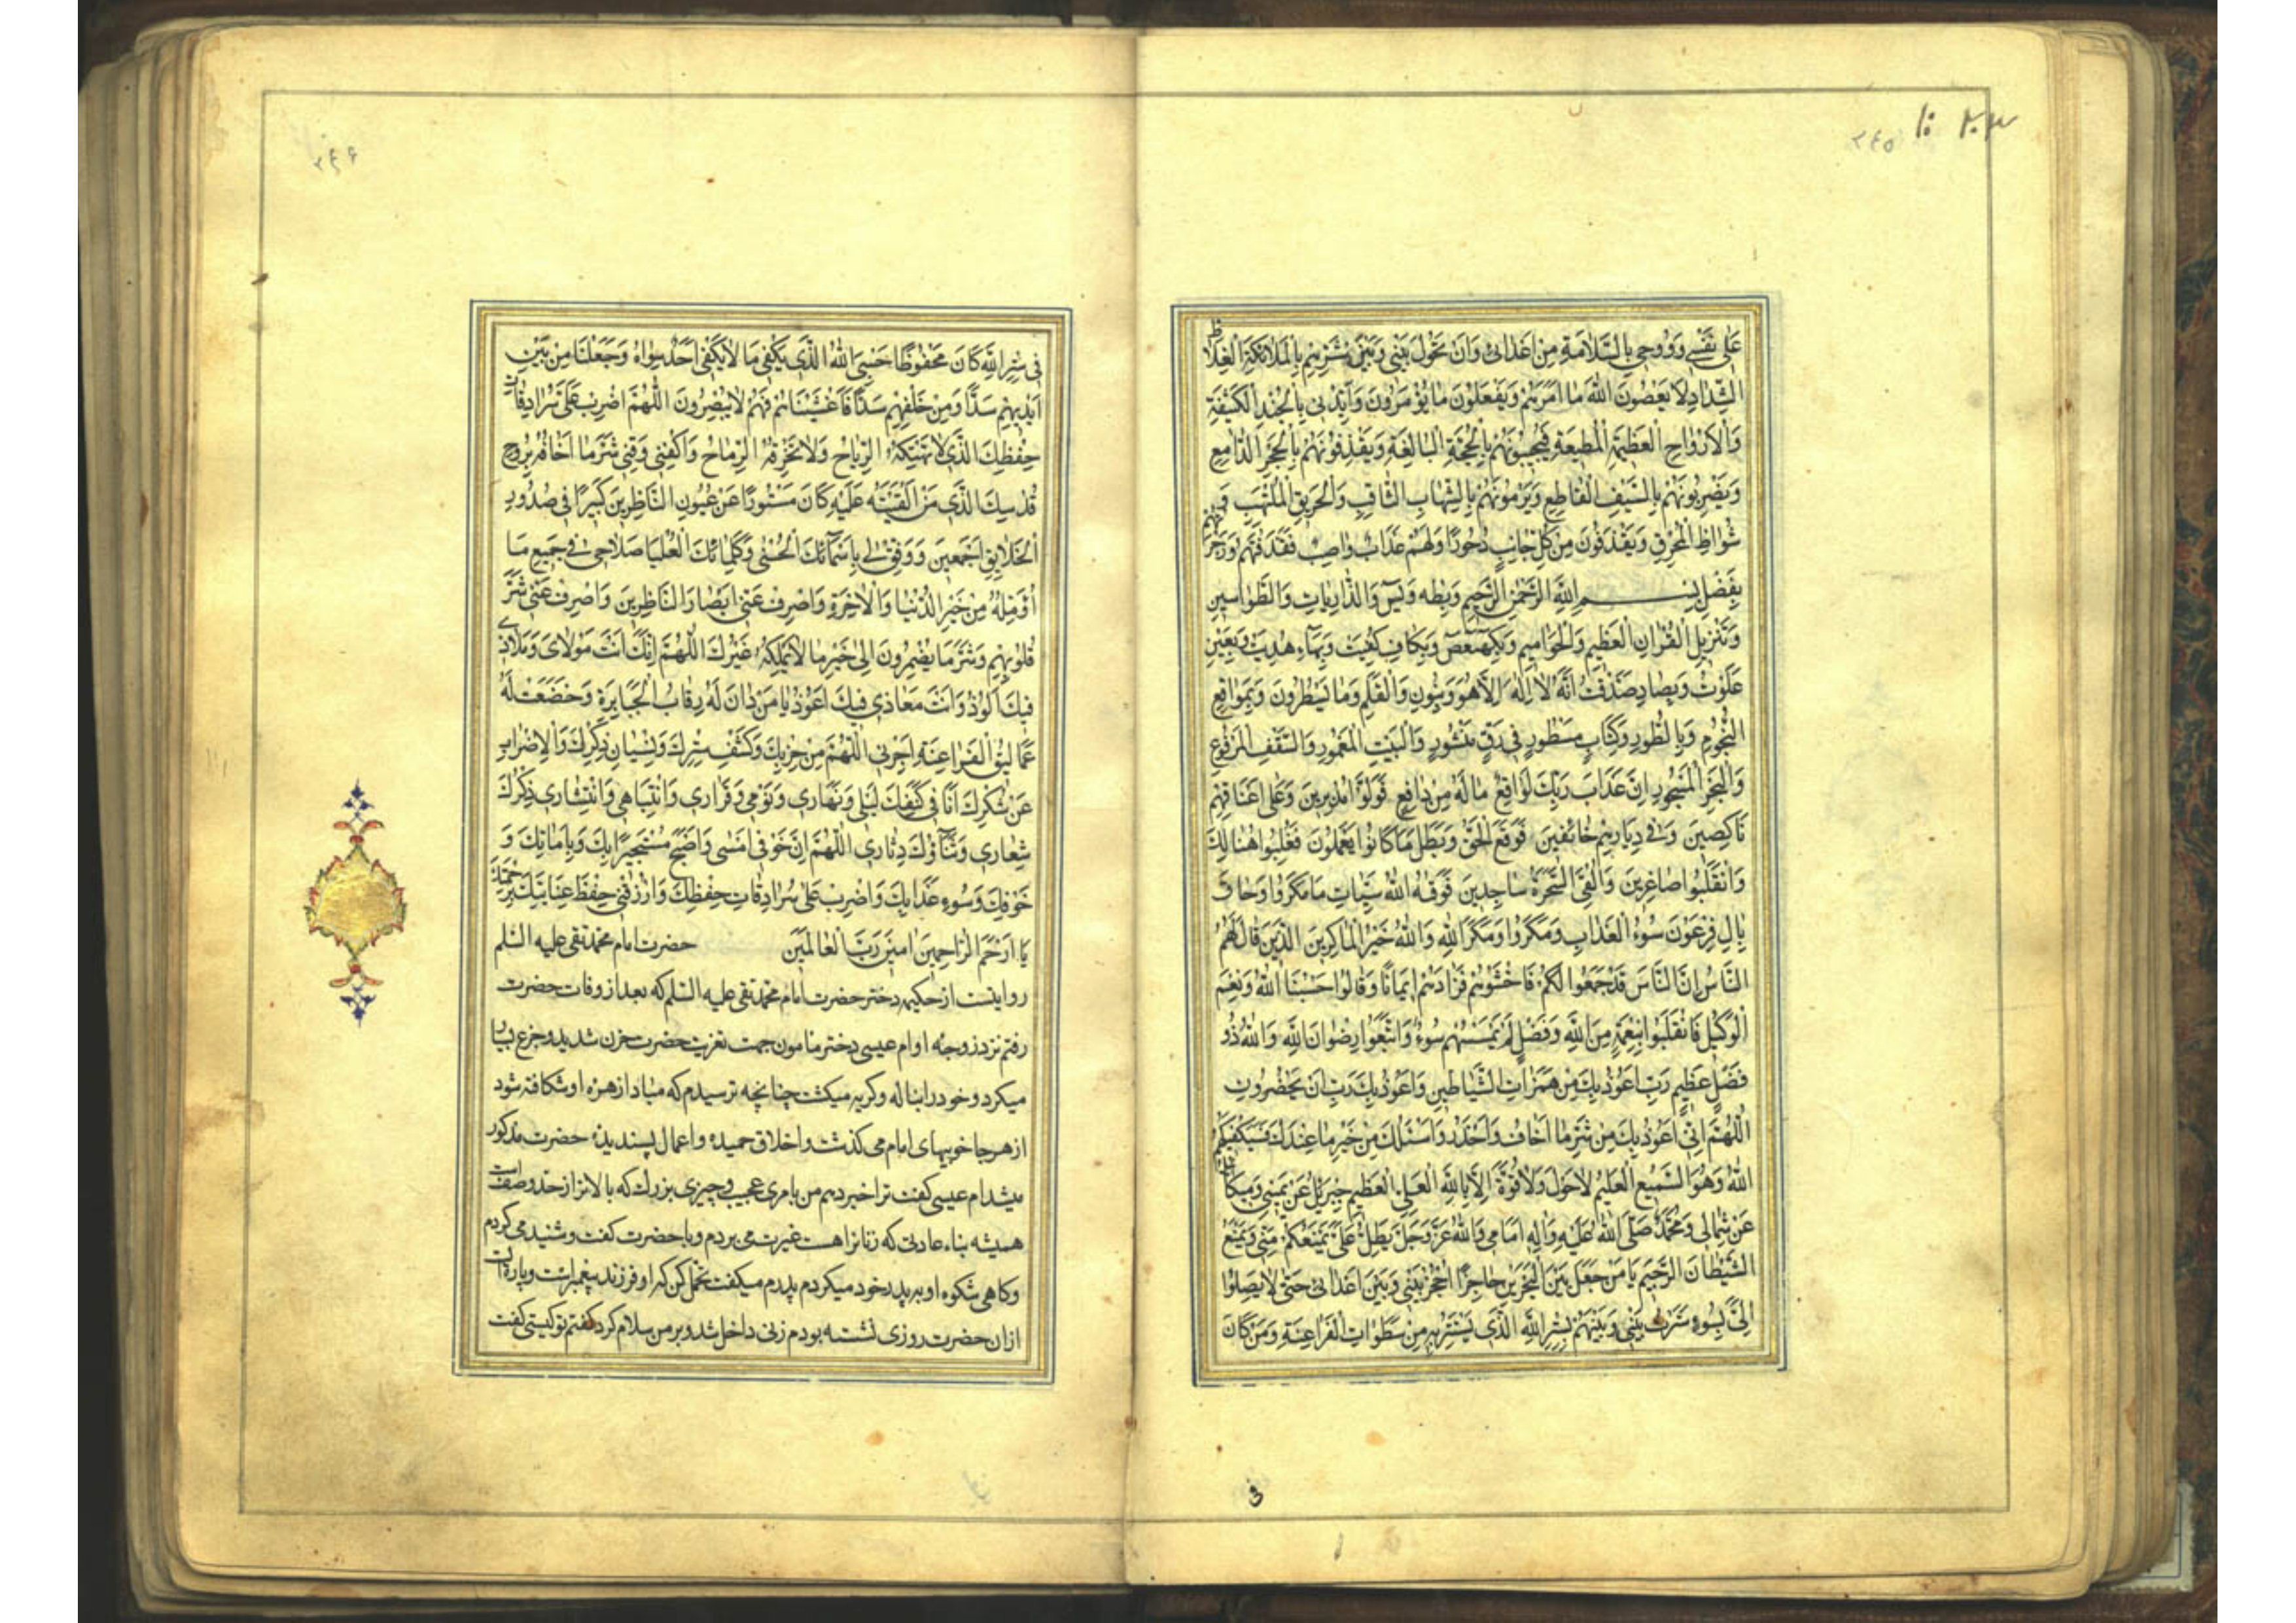 ٢٤٥
عَلىٰ نَفْسِى وَرُوحِى بِالسَّلامَةِ مِنْ اَعْدٰائى وَاَنْ تَحُولَ بَيْنِى وَبَيْنَ شَرِّهِمْ بِالْمَلائِكَةِ الْغِلاظِ
الشِّدادِ لا يَعْصُونَ اللهَ ما اَمَرَهُمْ وَيَفْعَلُونَ ما يُؤْمَرُونَ وَاَيِّدْنى بِالْجُنْدِ الْكَثيفَةِ
وَالْاَرْواحِ الْعَظيمَةِ الْمُطيعَةِ فَيُجيبُونَهُمْ بِالْحُجَّةِ الْبالِغَةِ وَيَقْذِفُونَهُمْ بِالْحَجَرِ الدّامِغِ
وَيَضْرِبُونَهُمْ بِالسَّيْفِ الْقاطِعِ وَيَرْمُونَهُمْ بِالشِّهابِ الثّاقِبِ وَالْحَريقِ الْمُلْتَهِبِ وَ
شُواظِ الْمُحْرِقِ وَيُقْذَفُونَ مِنْ كُلِّ جانِبٍ دُحُورًا وَلَهُمْ عَذابٌ واصِبٌ فَقَذَفْتُهُمْ وَزَجَرْتُهُمْ
بِفَضْلِ بِسْمِ اللهِ الرَّحْمٰنِ الرَّحيمِ وَبِطٰه وَيٰسٓ وَالذّارِياتِ وَالطَّواسينِ
وَتَنْزيلِ الْقُرْانِ الْعَظيمِ وَالْحَواميمِ وَبِكٓهٰيٰعٓصٓ وَبِكافِ كُفيتُ وَبِهاءِ هُديتُ وَبِعَيْنِ
عَلَوْتُ وَبِصادِ صَدَقْتُ اَنَّهُ لا اِلٰهَ اِلّا هُوَ وَبِنُونِ وَالْقَلَمِ وَما يَسْطُرُونَ وَبِمَواقِعِ
النُّجُومِ وَبِالطُّورِ وَكِتابٍ مَسْطُورٍ فى رَقٍّ مَنْشُورٍ وَالْبَيْتِ الْمَعْمُورِ وَالسَّقْفِ الْمَرْفُوعِ
وَالْبَحْرِ الْمَسْجُورِ اِنَّ عَذابَ رَبِّكَ لَواقِعٌ ما لَهُ مِنْ دافِعٍ فَوَلَّوْا مُدْبِرينَ وَعَلىٰ اَعْناقِهِمْ
ناكِصينَ وَفى دِيارِهِمْ خائِفينَ فَوَقَعَ الْحَقُّ وَبَطَلَ ما كانُوا يَعْمَلُونَ فَغُلِبُوا هُنالِكَ
وَانْقَلَبُوا صاغِرينَ وَاُلْقِىَ السَّحَرَةُ ساجِدينَ فَوَقٰهُ اللهُ سَيِّئاتِ ما مَكَرُوا وَحاقَ
بِالِ فِرْعَوْنَ سُوءُ الْعَذابِ وَمَكَرُوا وَمَكَرَ اللهُ وَاللهُ خَيْرُ الْماكِرينَ الَّذينَ قالَ لَهُمُ
النّاسُ اِنَّ النّاسَ قَدْ جَمَعُوا لَكُمْ فَاخْشَوْهُمْ فَزادَهُمْ ايمانًا وَقالُوا حَسْبُنَا اللهُ وَنِعْمَ
الْوَكيلُ فَانْقَلَبُوا بِنِعْمَةٍ مِنَ اللهِ وَفَضْلٍ لَمْ يَمْسَسْهُمْ سُوءٌ وَاتَّبَعُوا رِضْوانَ اللهِ وَاللهُ ذُو
فَضْلٍ عَظيمٍ رَبِّ اَعُوذُ بِكَ مِنْ هَمَزاتِ الشَّياطينِ وَاَعُوذُ بِكَ رَبِّ اَنْ يَحْضُرُونِ
اَللّٰهُمَّ اِنّى اَعُوذُ بِكَ مِنْ شَرِّ ما اَخافُ وَاَحْذَرُ وَاَسْئَلُكَ مِنْ خَيْرِ ما عِنْدَكَ فَسَيَكْفيكَهُمُ
اللهُ وَهُوَ السَّميعُ الْعَليمُ لا حَوْلَ وَلا قُوَّةَ اِلّا بِاللهِ الْعَلِىِّ الْعَظيمِ جِبْريلُ عَنْ يَمينى وَميكائيلُ
عَنْ شِمالى وَمُحَمَّدٌ صَلَّى اللهُ عَلَيْهِ وَالِهِ اَمامى وَاللهُ عَزَّ وَجَلَّ يُطِلُّ عَلَىَّ يَمْنَعُكُمْ مِنّى وَيَمْنَعُ
الشَّيْطانَ الرَّجيمَ يا مَنْ جَعَلَ بَيْنَ الْبَحْرَيْنِ حاجِزًا اُحْجُزْ بَيْنى وَبَيْنَ اَعْدائى حَتّىٰ لا يَصِلُوا
اِلَىَّ بِسُوءٍ سَتَرْتُ بَيْنى وَبَيْنَهُمْ بِسِتْرِ اللهِ الَّذى يَسْتَتِرُ بِهِ مِنْ سَطَواتِ الْفَراعِنَةِ وَمَنْ كانَ
٢٤۶
فى سِتْرِ اللهِ كانَ مَحْفُوظًا حَسْبِىَ اللهُ الَّذى يَكْفى ما لا يَكْفى اَحَدٌ سِواهُ وَجَعَلْنا مِنْ بَيْنِ
اَيْديهِمْ سَدًّا وَمِنْ خَلْفِهِمْ سَدًّا فَاَغْشَيْناهُمْ فَهُمْ لا يُبْصِرُونَ اَللّٰهُمَّ اضْرِبْ عَلَىَّ سُرادِقاتِ
حِفْظِكَ الَّذى لا تَهْتِكُهُ الرِّياحُ وَلا تَخْرِقُهُ الرِّماحُ وَاكْفِنى وَقِنى شَرَّ ما اَخافُهُ بِرُوحِ
قُدْسِكَ الَّذى مَنْ اَلْقَيْتَهُ عَلَيْهِ كانَ مَسْتُورًا عَنْ عُيُونِ النّاظِرينَ كَبيرًا فى صُدُورِ
الْخَلايِقِ اَجْمَعينَ وَوَفِّقْ لى بِاَسْمائِكَ الْحُسْنىٰ وَكَلِماتِكَ الْعُلْيا صَلاحى فى جَميعِ ما
اُؤَمِّلُهُ مِنْ خَيْرِ الدُّنْيا وَالْاخِرَةِ وَاصْرِفْ عَنّى اَبْصارَ النّاظِرينَ وَاصْرِفْ عَنّى شَرَّ
قُلُوبِهِمْ وَشَرَّ ما يُضْمِرُونَ اِلىٰ خَيْرِ ما لا يَمْلِكُهُ غَيْرُكَ اَللّٰهُمَّ اِنَّكَ اَنْتَ مَوْلاىَ وَمَلاذى
فَبِكَ اَلُوذُ وَاَنْتَ مَعاذى فَبِكَ اَعُوذُ يا مَنْ دانَ لَهُ رِقابُ الْجَبابِرَةِ وَخَضَعَتْ لَهُ
عَماليقُ الْفَراعِنَةِ اَجِرْنى اَللّٰهُمَّ مِنْ خِزْيِكَ وَكَشْفِ سِتْرِكَ وَنِسْيانِ ذِكْرِكَ وَالْاِضْرابِ
عَنْ شُكْرِكَ اَنَا فى كَنَفِكَ لَيْلى وَنَهارى وَنَوْمى وَقَرارى وَانْتِباهى وَانْتِشارى ذِكْرُكَ
شِعارى وَثَناؤُكَ دِثارى اَللّٰهُمَّ اِنَّ خَوْفى اَمْسىٰ وَاَصْبَحَ مُسْتَجيرًا بِكَ وَبِاَمانِكَ وَ
خَوْفِكَ وَسُوءِ عَذابِكَ وَاضْرِبْ عَلَىَّ سُرادِقاتِ حِفْظِكَ وَارْزُقْنى حِفْظَ عِنايَتِكَ بِرَحْمَتِكَ
يا اَرْحَمَ الرّاحِمينَ امينَ رَبَّ الْعالَمينَ حضرت امام محمد تقى عليه السّلم
روايتست از حكيمه دختر حضرت امام محمد تقى عليه السّلم كه بعد از وفات حضرت
رفتم نزد زوجه او ام عيسى دختر مامون جهت تعزيت حضرت حزن شديد و جزع بسيار
ميكرد و خود را بناله و كريه ميكشت چنانچه ترسيدم كه مبادا زهره او شكافته شود
از هر جا خوبيهاى امام مى كذشت و اخلاق حميده و اعمال پسنديده حضرت مذكور
ميشد ام عيسى كفت ترا خبر دهم من بامرى عجيب و چيزى بزرك كه بالاتر از حد وصف است
هميشه بناء عادتى كه زنانرا هست غيرت مى بردم و با حضرت كفت و شنيد مى كردم
و كاهى شكوه او بر پدر خود ميكردم پدرم ميكفت تحمل كن كه او فرزند پيغمبر است و پاره
از ان حضرت روزى نشسته بودم زنى داخل شد و بر من سلام كرد كفتم تو كيستى كفت